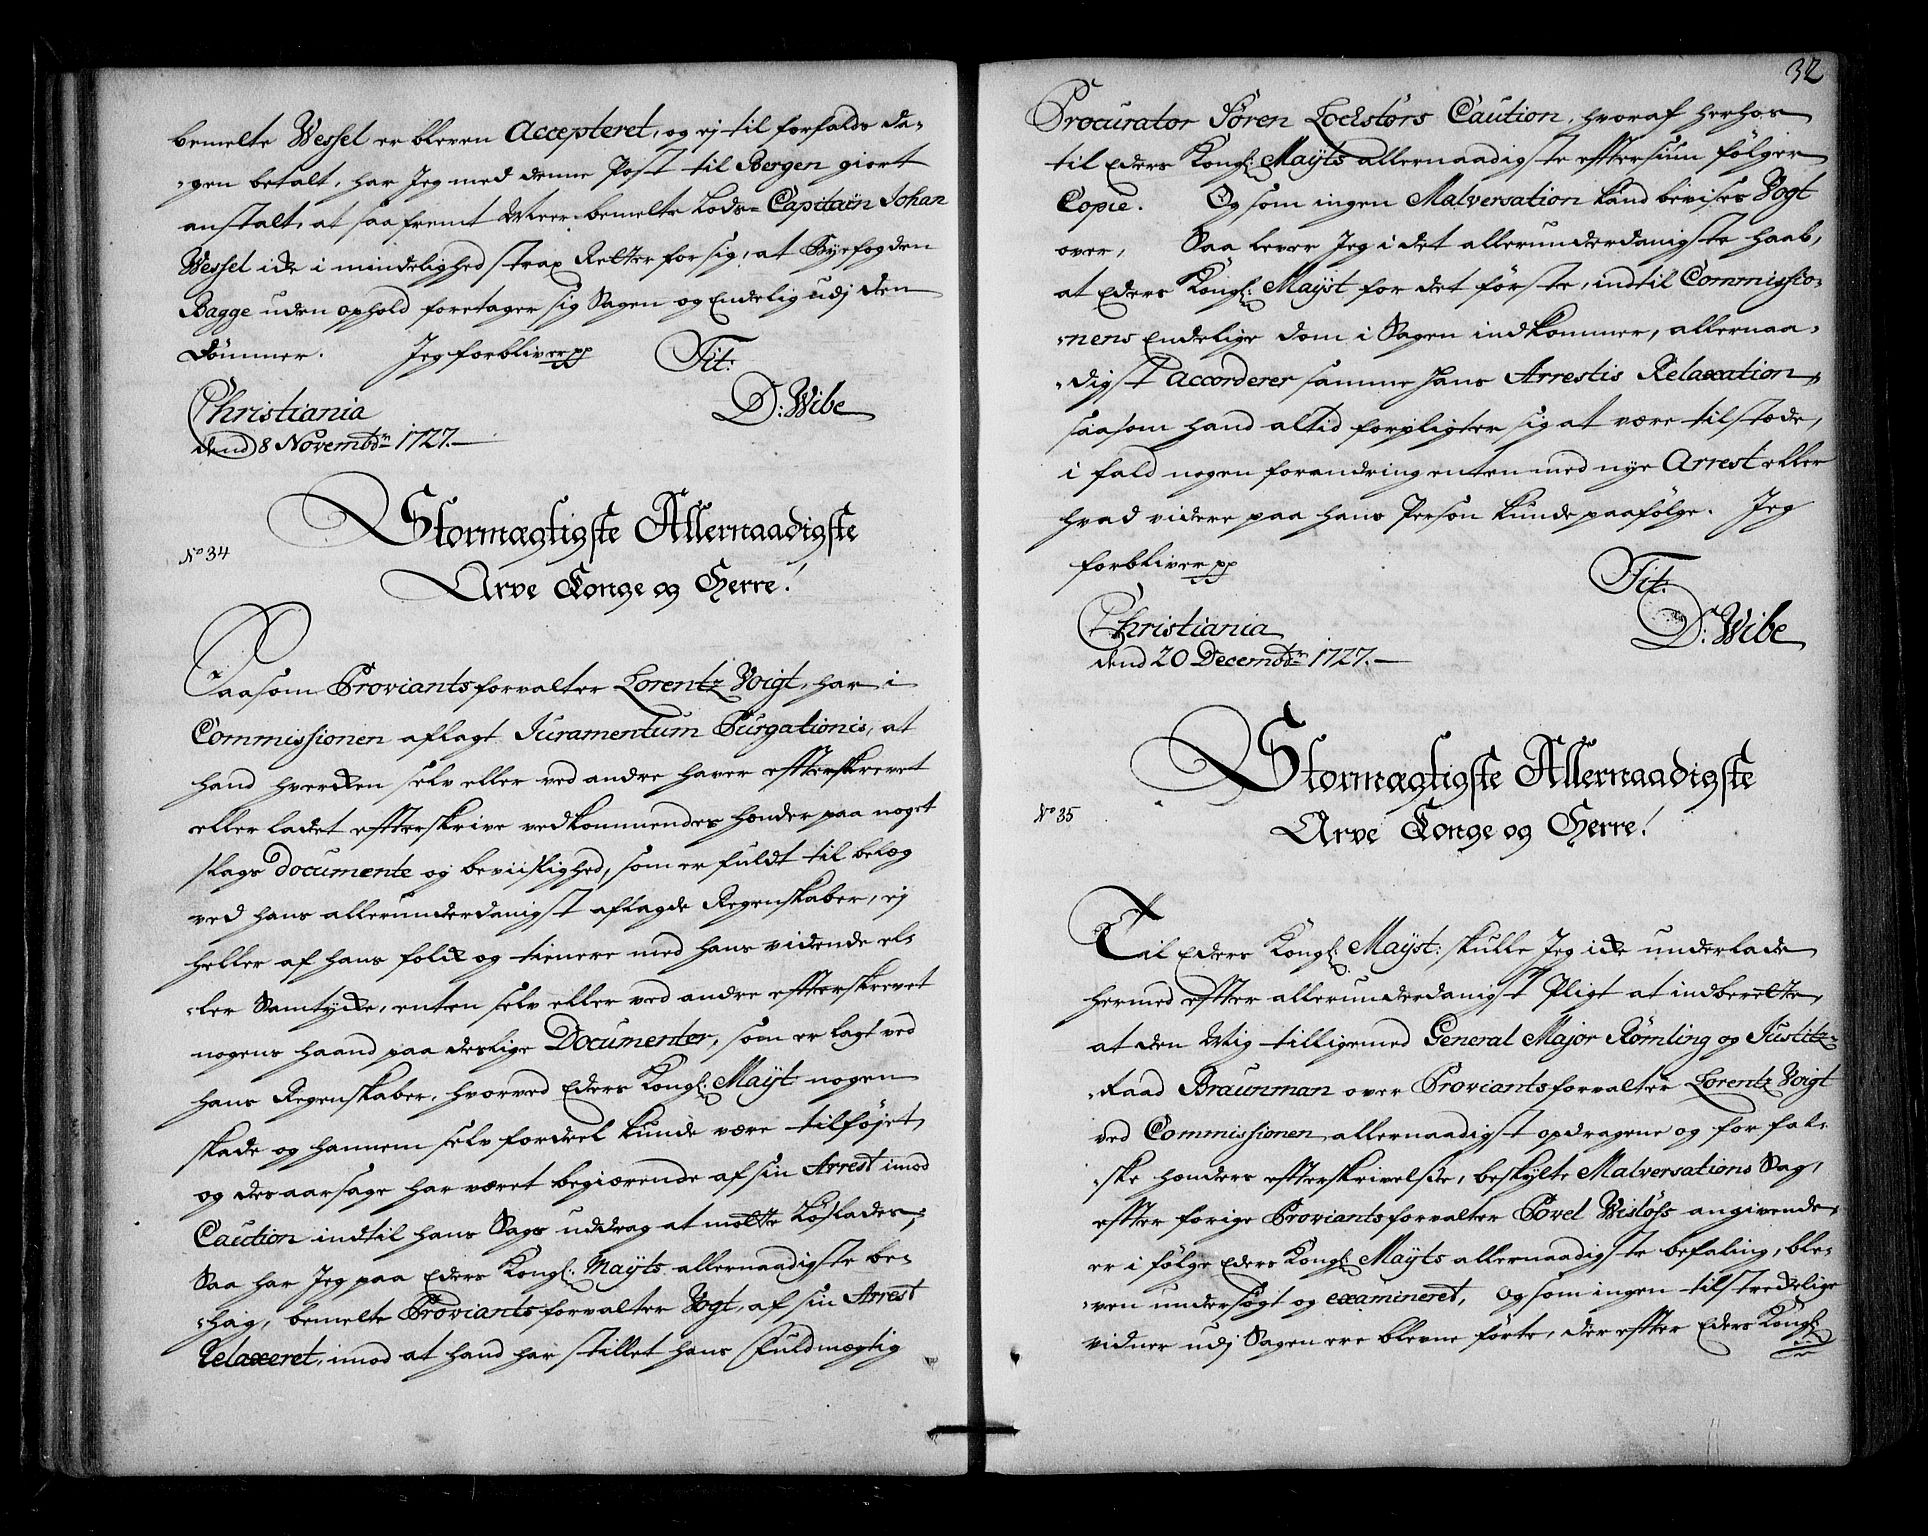 bemelte Wessel er bleven Accepteret, og ej til forfalds da-
-gen betalt, har Jeg med denne Post til Bergen giort
anstalt, at saa fremt Meer-bemelte Lods-Capitain Johan
Wessel icke i mindelighed strax Retter for sig, at Byefogden
Bagge uden ophold foretager sig Sagen og Endelig udj den
dømmer. Jeg forbliver pp Tit:
D: Wibe
Christiania
dend 8 Novembr 1727.
No 34
Stormægtigste Allernaadigste
Arve Konge og Herre!
Saasom Proviantsforvalter Lorentz Voigt, har i
Commissionen aflagt Juramentum Purgationis, at
hand hvercken selv eller ved andre haver effterskrevet
eller ladet effterskrive vedkommendes hænder paa noget
slags documente og beviislighed, som er fuldt til belæg
ved hans allerunderdanigst aflagde Regenskaber, ej
heller af hans folck og tienere med hans vidende el-
-ler Samtycke, enten selv eller ved andre effterskrevet
nogens haand paa deslige Documenter, som er lagt ved
hans Regenskaber, hvorved Eders Kongl: Mayt nogen
skade og hannem selv fordeel kunde være tilføjet,
og desaarsage har været begiærende af sin Arrest imod
Caution indtil hans Sags uddrag at motte Løslades,
Saa har Jeg paa Eders Kongl: Mayts allernaadigste be-
-hag, bemelte Proviantsforvalter Vogt, af sin Arrest
Relaxeret, imod at hand har stillet hans Fuldmægtig
32
Procurator Søren Lockstørs Caution, hvoraf herhos
til Eders Kongl: Mayts allernaadigste efftersiun følger
Copie. Og som ingen Malversation kand bevises Vogt
over, Saa lever Jeg i det allerunderdanigste haab,
at Eders Kongl: Mayst for det første, indtil Commissio-
-nens Endelige dom i Sagen indkommer, allernaa-
-digst accorderer samme hans Arrestis Relaxation,
saasom hand altid forpligter sig at være tilstæde,
i fald nogen forandring enten med nye Arrest eller
hvad videre paa hans Person kunde paafølge. Jeg
forbliver pp Tit:
D: Wibe
Christiania
dend 20 Decembr 1727.
No 35
Stormægtigste Allernaadigste
Arve Konge og Herre!
Til Eders Kongl: Mayst: skulle Jeg icke underlade
hermed effter allerunderdanigst Pligt at indberette,
at den Mig tilligemed General Major Rømling og Justitz-
-Raad Braunman over Proviantsforvalter Lorentz Voigt
ved Commissionen allernaadigst opdragene og for fal-
-ske hænders effterskrivelse, beskylte Malversations Sag,
effter forige Proviantsforvalter Povel Wisløfs angivende,
er i følge Eders Kongl: Mayts allernaadigste befaling, ble-
-ven undersøgt og examineret, Og som ingen tilstrekelige
vidner udj Sagen ere blevne førte, der effter Eders Kongl: